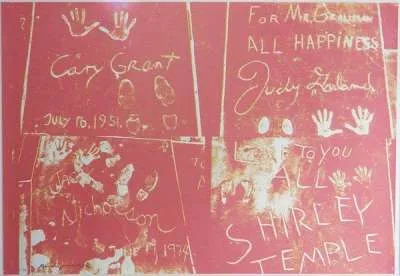 Cary Grant
JULY 16, 1951.
FOR MR. GRAUMAN
ALL HAPPINESS
Judy Garland
JACK
Nicholson
JUNE 9, 1974
TO YOU
ALL
SHIRLEY
TEMPLE